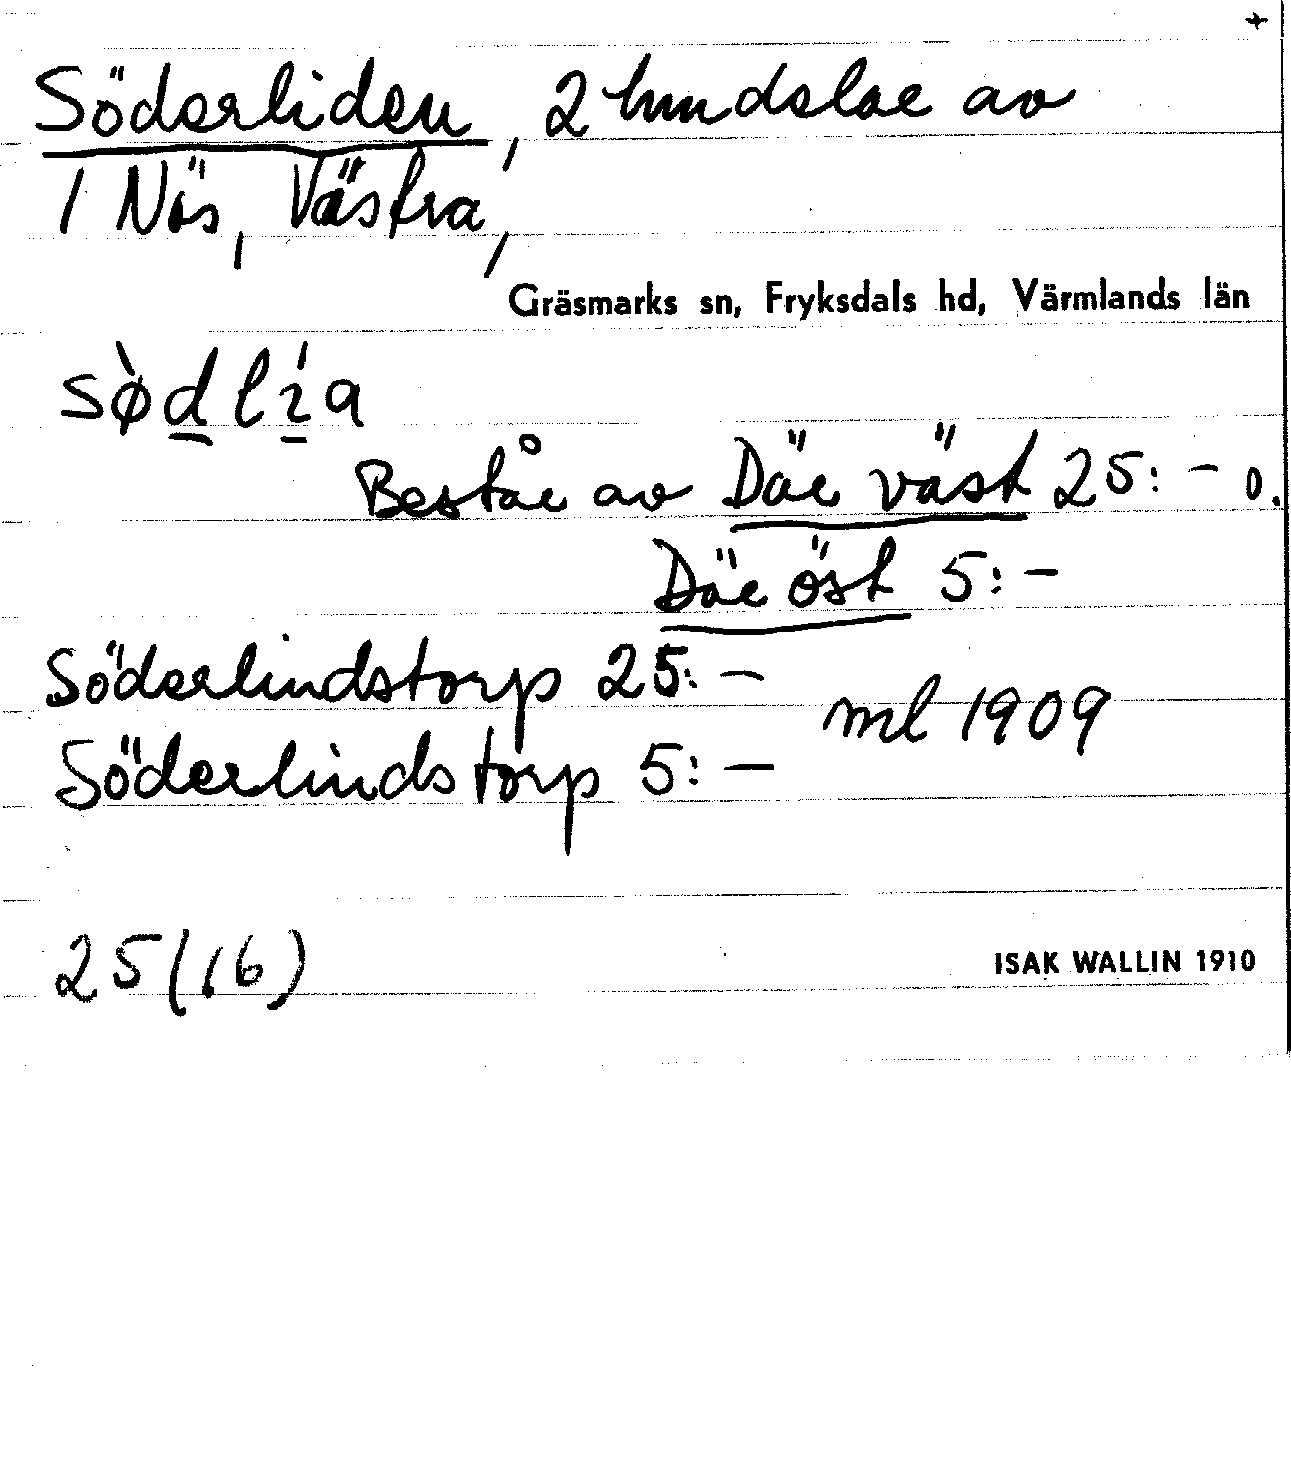 Söderliden, 2 hmdelar av
1 Näs, Västra,
Gräsmarks sn, Fryksdals hd, Värmlands län
sø̀dlía
Består av Där väst 25:- o.
Där öst 5:-
Söderlindstorp 25:-
ml 1909
Söderlindstorp 5:-
25 (16)
ISAK WALLIN 1910